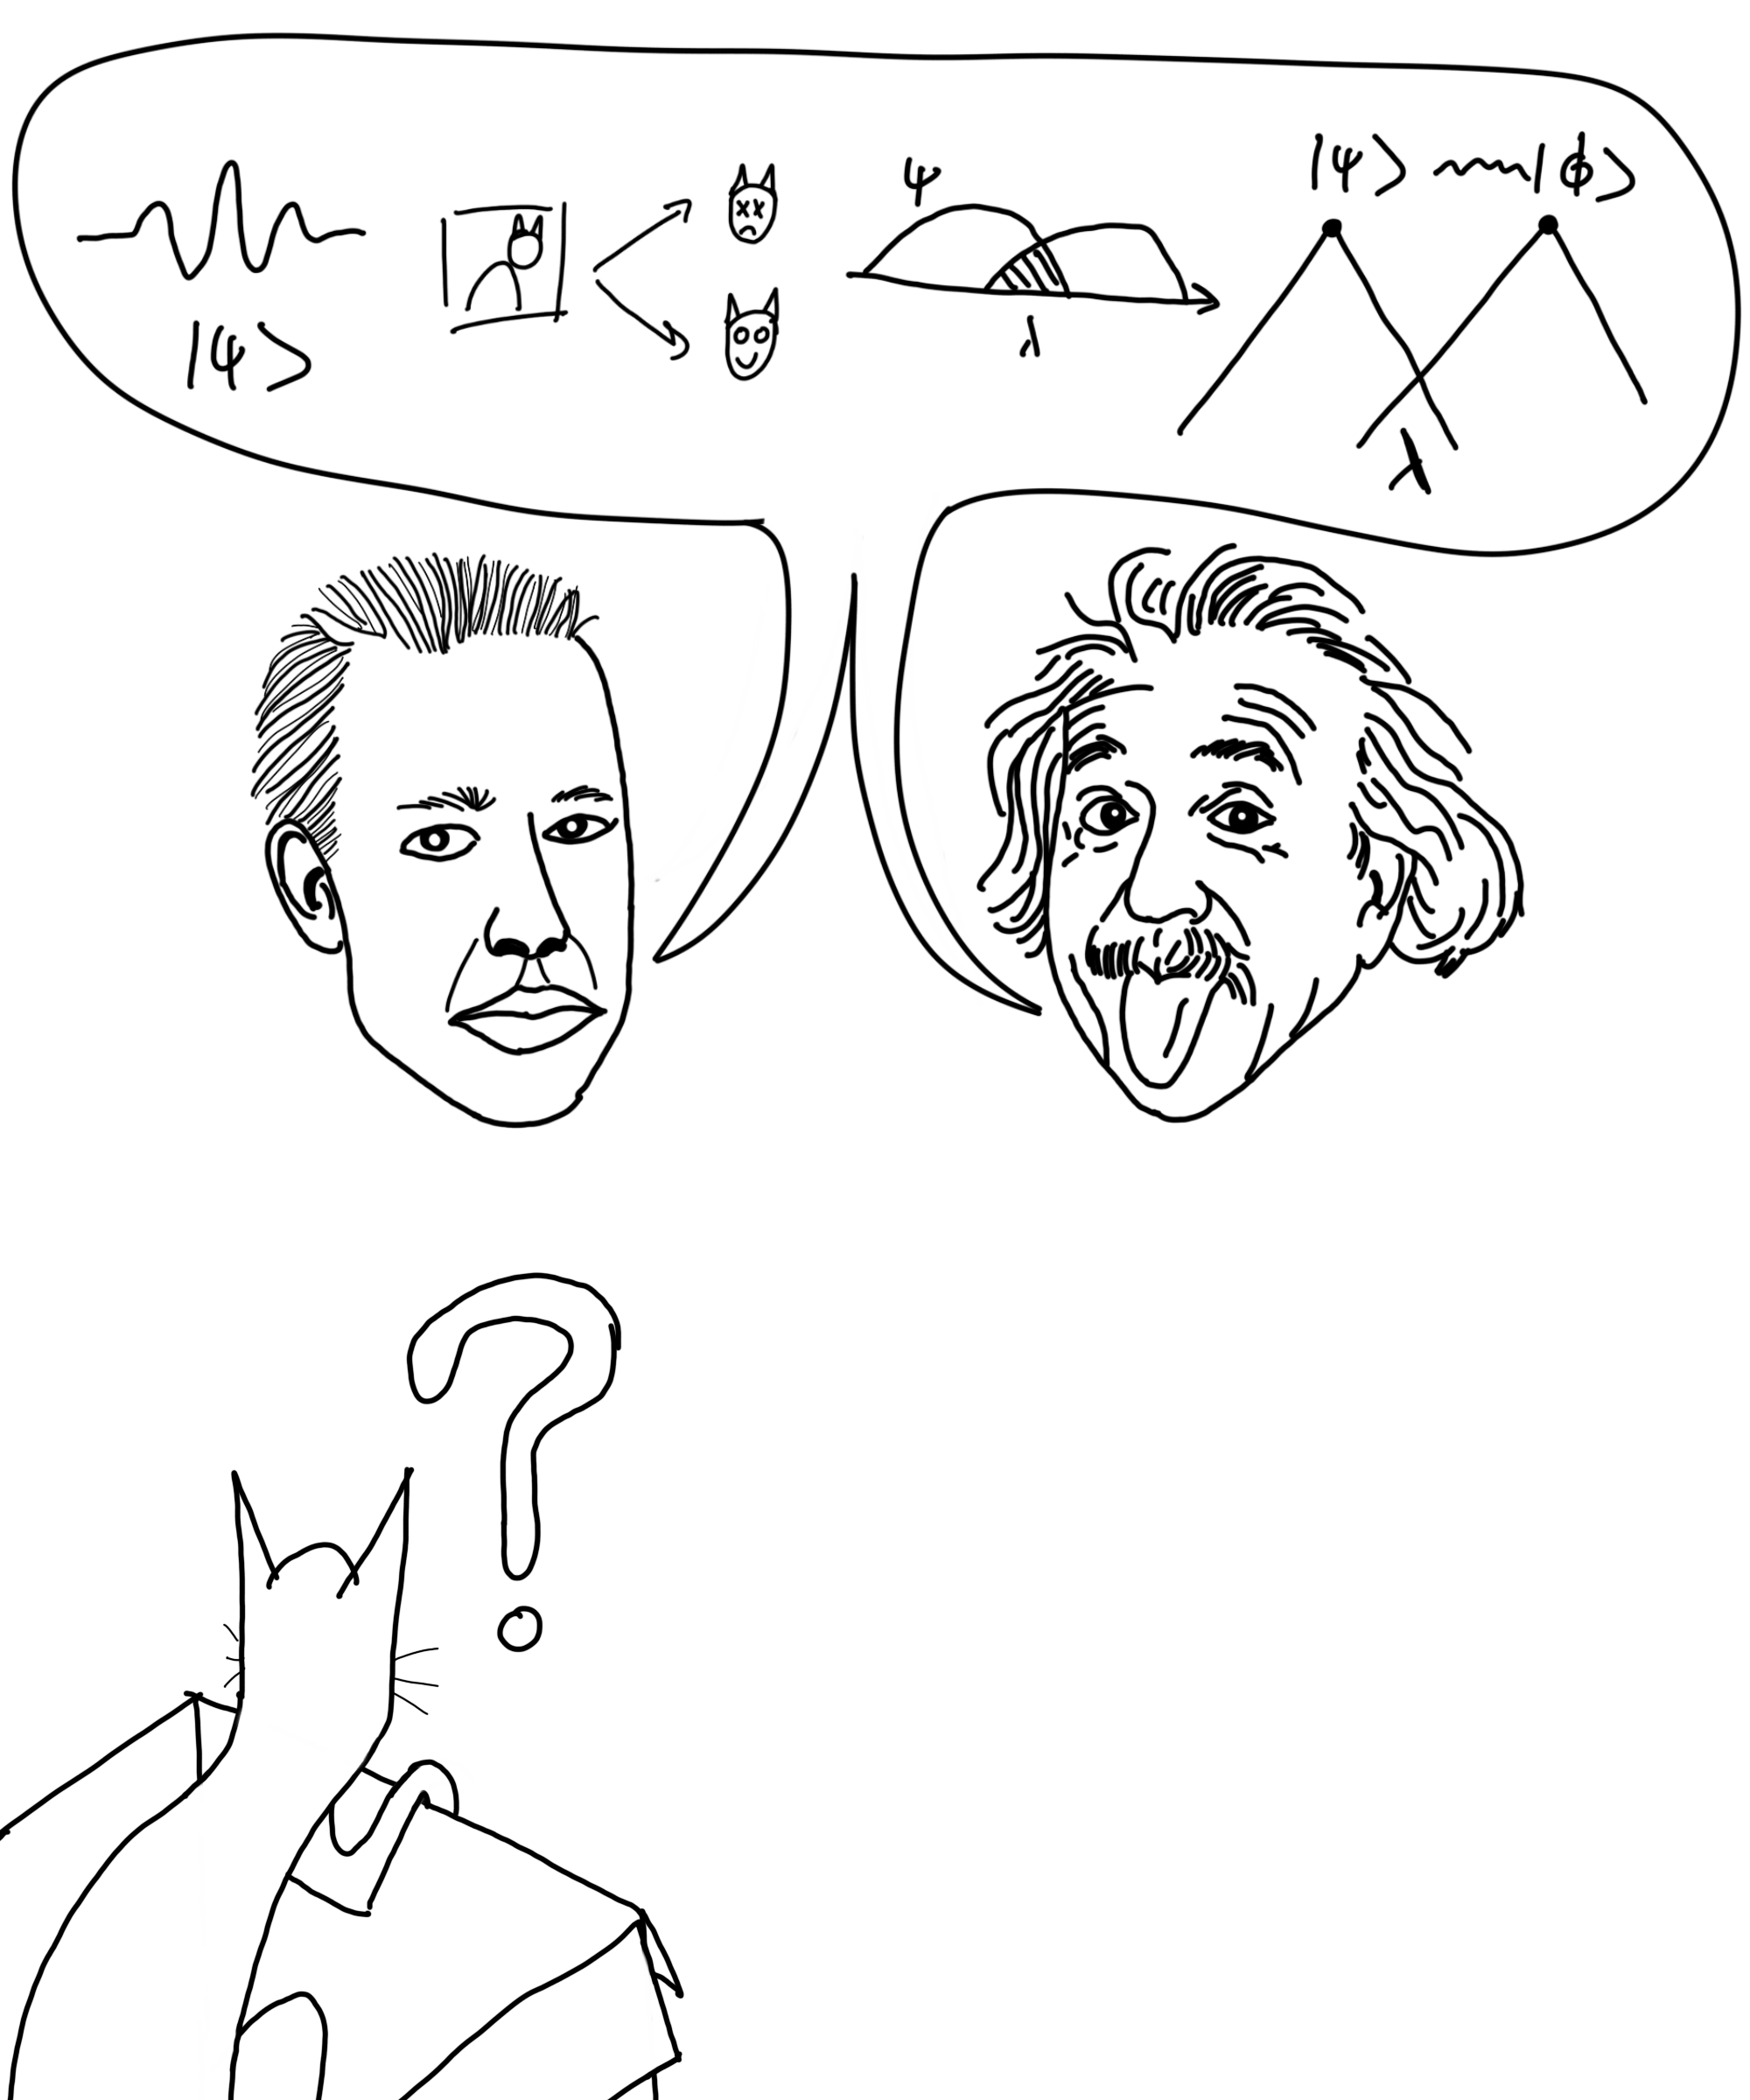 |ψ⟩
ψ
λ
|ψ⟩ |ϕ⟩
λ
?